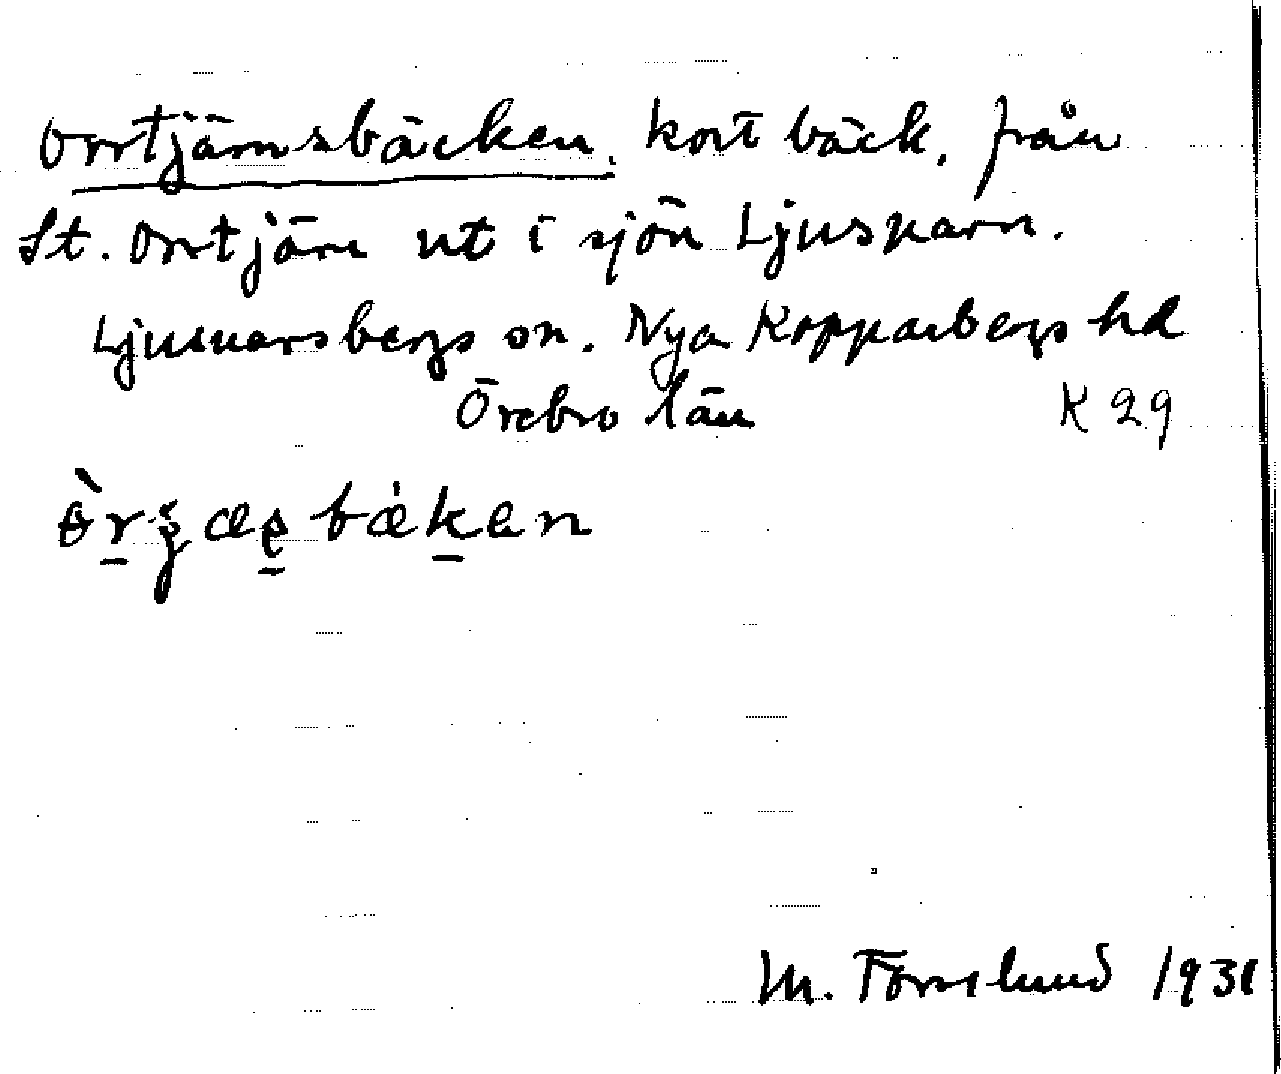 Orrtjärnsbäcken, kort bäck, från
St. Orrtjärn ut i sjön Ljusnarn.
Ljusnarsbergs sn. Nya Kopparbergs hd
Örebro län K 29
M. Forslund 1931